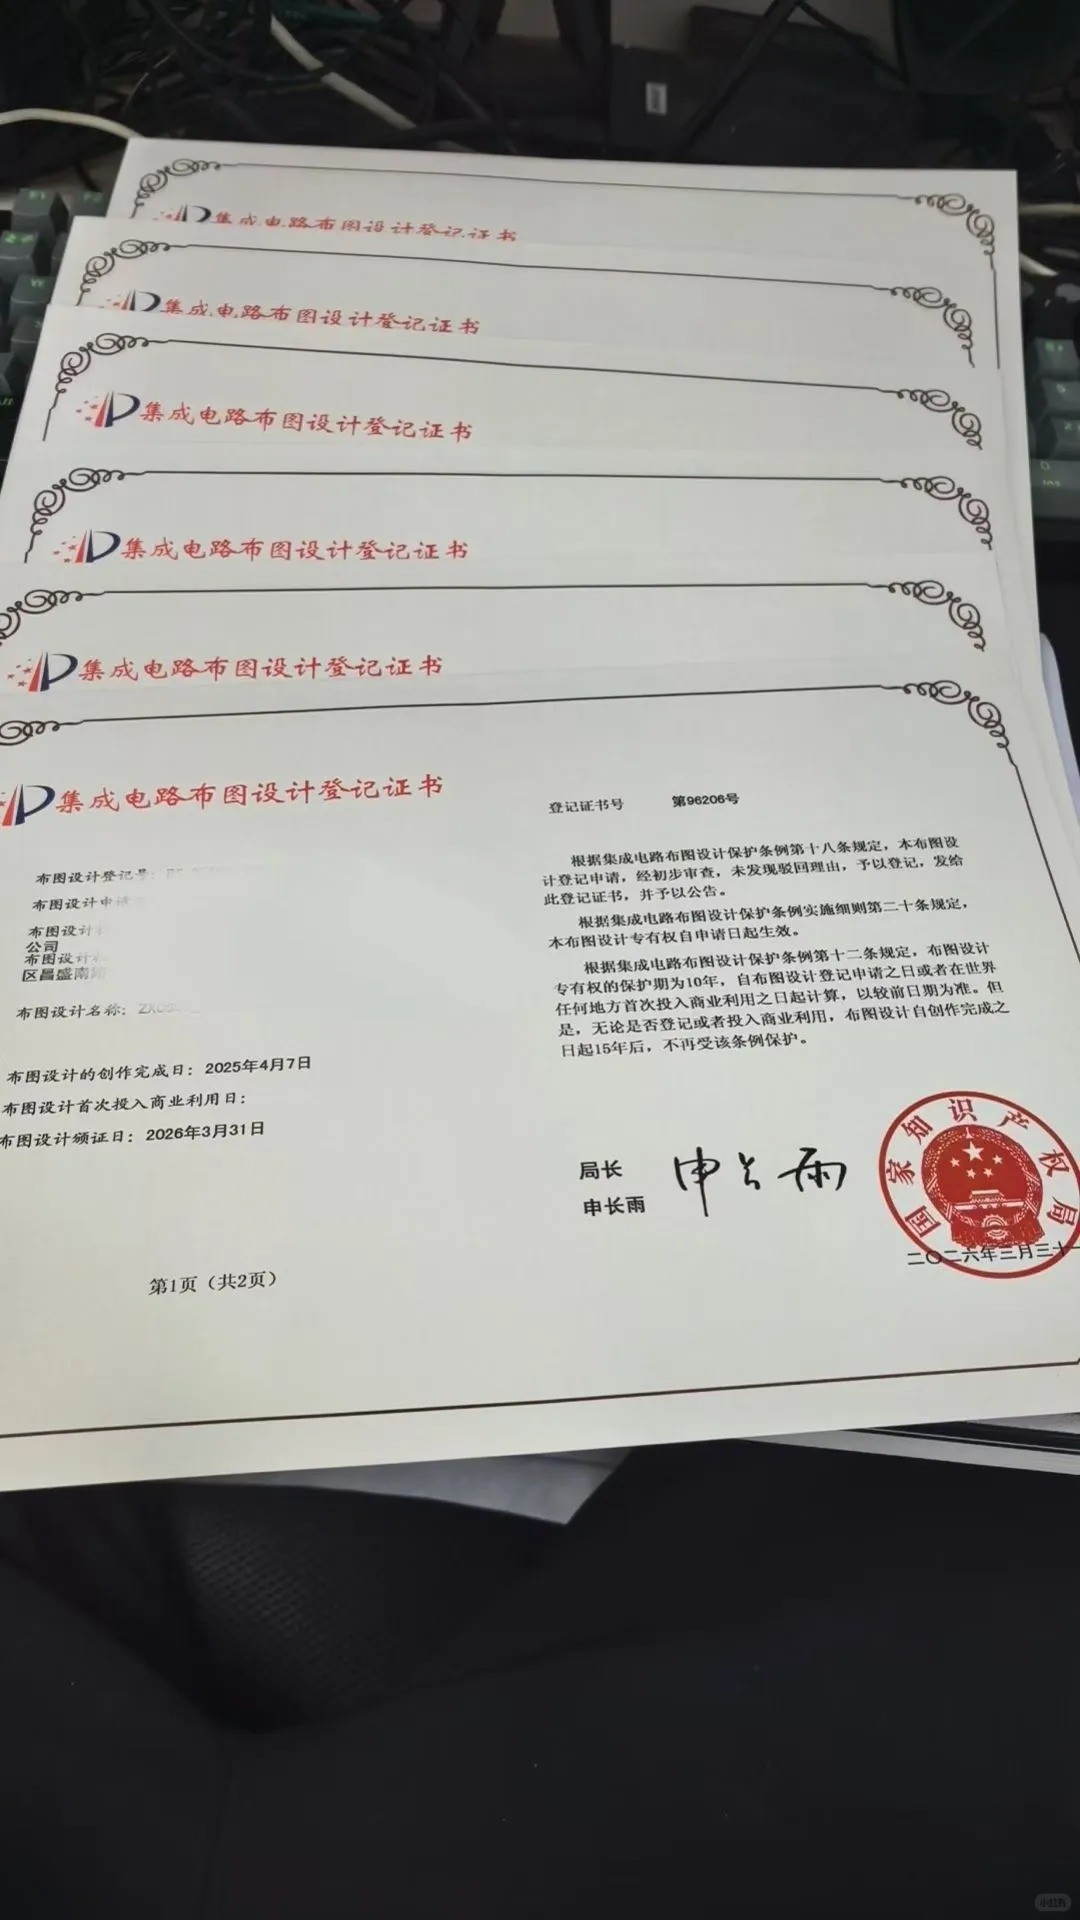 集成电路布图设计登记证书
集成电路布图设计登记证书
集成电路布图设计登记证书
集成电路布图设计登记证书
集成电路布图设计登记证书
集成电路布图设计登记证书
布图设计登记号：
布图设计申请
布图设计
公司
布图设计
区昌盛南路
布图设计名称：
布图设计的创作完成日：2025年4月7日
布图设计首次投入商业利用日：
布图设计颁证日：2026年3月31日
第1页（共2页）
登记证书号 第96206号
根据集成电路布图设计保护条例第十八条规定，本布图设
计登记申请，经初步审查，未发现驳回理由，予以登记，发给
此登记证书，并予以公告。
根据集成电路布图设计保护条例实施细则第二十条规定，
本布图设计专有权自申请日起生效。
根据集成电路布图设计保护条例第十二条规定，布图设计
专有权的保护期为10年，自布图设计登记申请之日或者在世界
任何地方首次投入商业利用之日起计算，以较前日期为准。但
是，无论是否登记或者投入商业利用，布图设计自创作完成之
日起15年后，不再受该条例保护。
局长
申长雨
申长雨
国家知识产权局
二〇二六年三月三十一
小红书